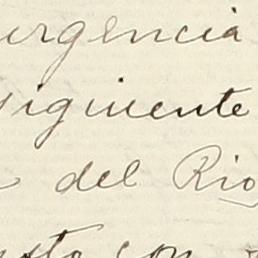 urgencia
siguiente
del Rio
con